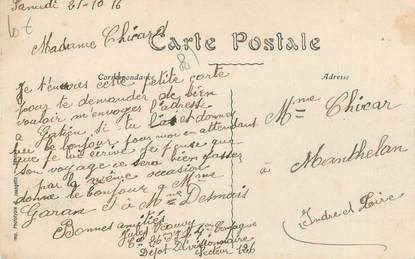 Samedi 21-10 16
Madame Chicard
Carte Postale
Correspondance
Adresse
Je t'envoies cette petite carte
pour te demander de bien
vouloir m'envoyer l'adresse
à Gatien si tu
le bonjour pour moi en attendant
que je lui écrive je pense que
son voyage ce sera bien passer
par la même occasion
donne le bonjour à Mme
Garan et à Mme Desmais
Bonnes amitiés
Jules
Dépôt Divisionnaire
Secteur
Mme Chicar
à
Manthelan
Indre et Loire